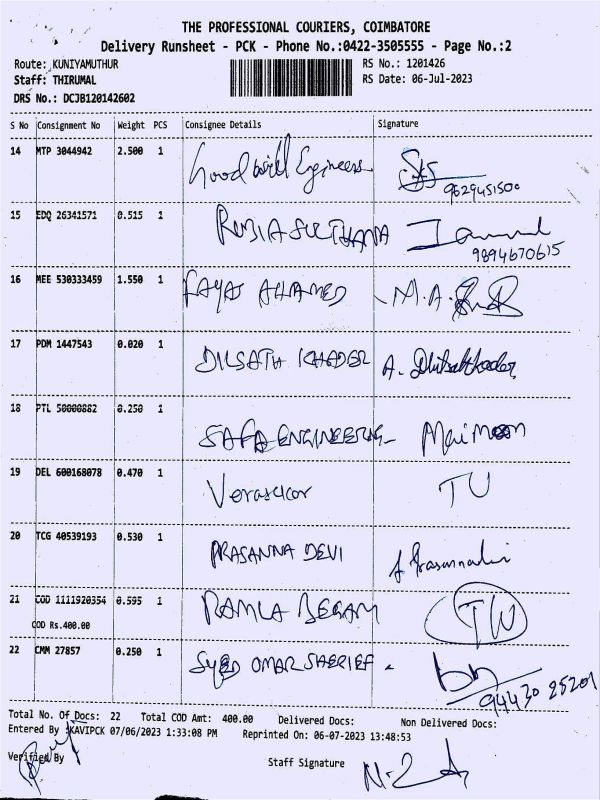 THE PROFESSIONAL COURIERS, COIMBATORE
Delivery Runsheet - PCK - Phone No.:0422-3505555 - Page No.:2
Route: KUNIYAMUTHUR RS No.: 1201426
Staff: THIRUMAL RS Date: 06-Jul-2023
DRS No.: DCJB120142602
S No Consignment No Weight PCS Consignee Details Signature
14 MTP 3044942 2.500 1 Good will Engineers
9629451500
15 EDQ 26341571 0.515 1 RUBIA SULTHANA
9894670615
16 MEE 530333459 1.550 1 FAYAS AHAMED M.A.
17 PDM 1447543 0.020 1 DILSATH KHADER A. Dhilsathkader
18 PTL 50000882 0.250 1 SAFA ENGINEERING Maimoon
19 DEL 600168078 0.470 1 TU
20 TCG 40539193 0.530 1 PRASANNA DEVI
21 COD 1111920354 0.595 1 RAMLA BEGAM TW
COD Rs.400.00
22 CMM 27857 0.250 1 SYED OMAR SHERIEF
94430 25201
Total No. Of Docs: 22 Total COD Amt: 400.00 Delivered Docs: Non Delivered Docs:
Entered By :KAVIPCK 07/06/2023 1:33:08 PM Reprinted On: 06-07-2023 13:48:53
Verified By Staff Signature